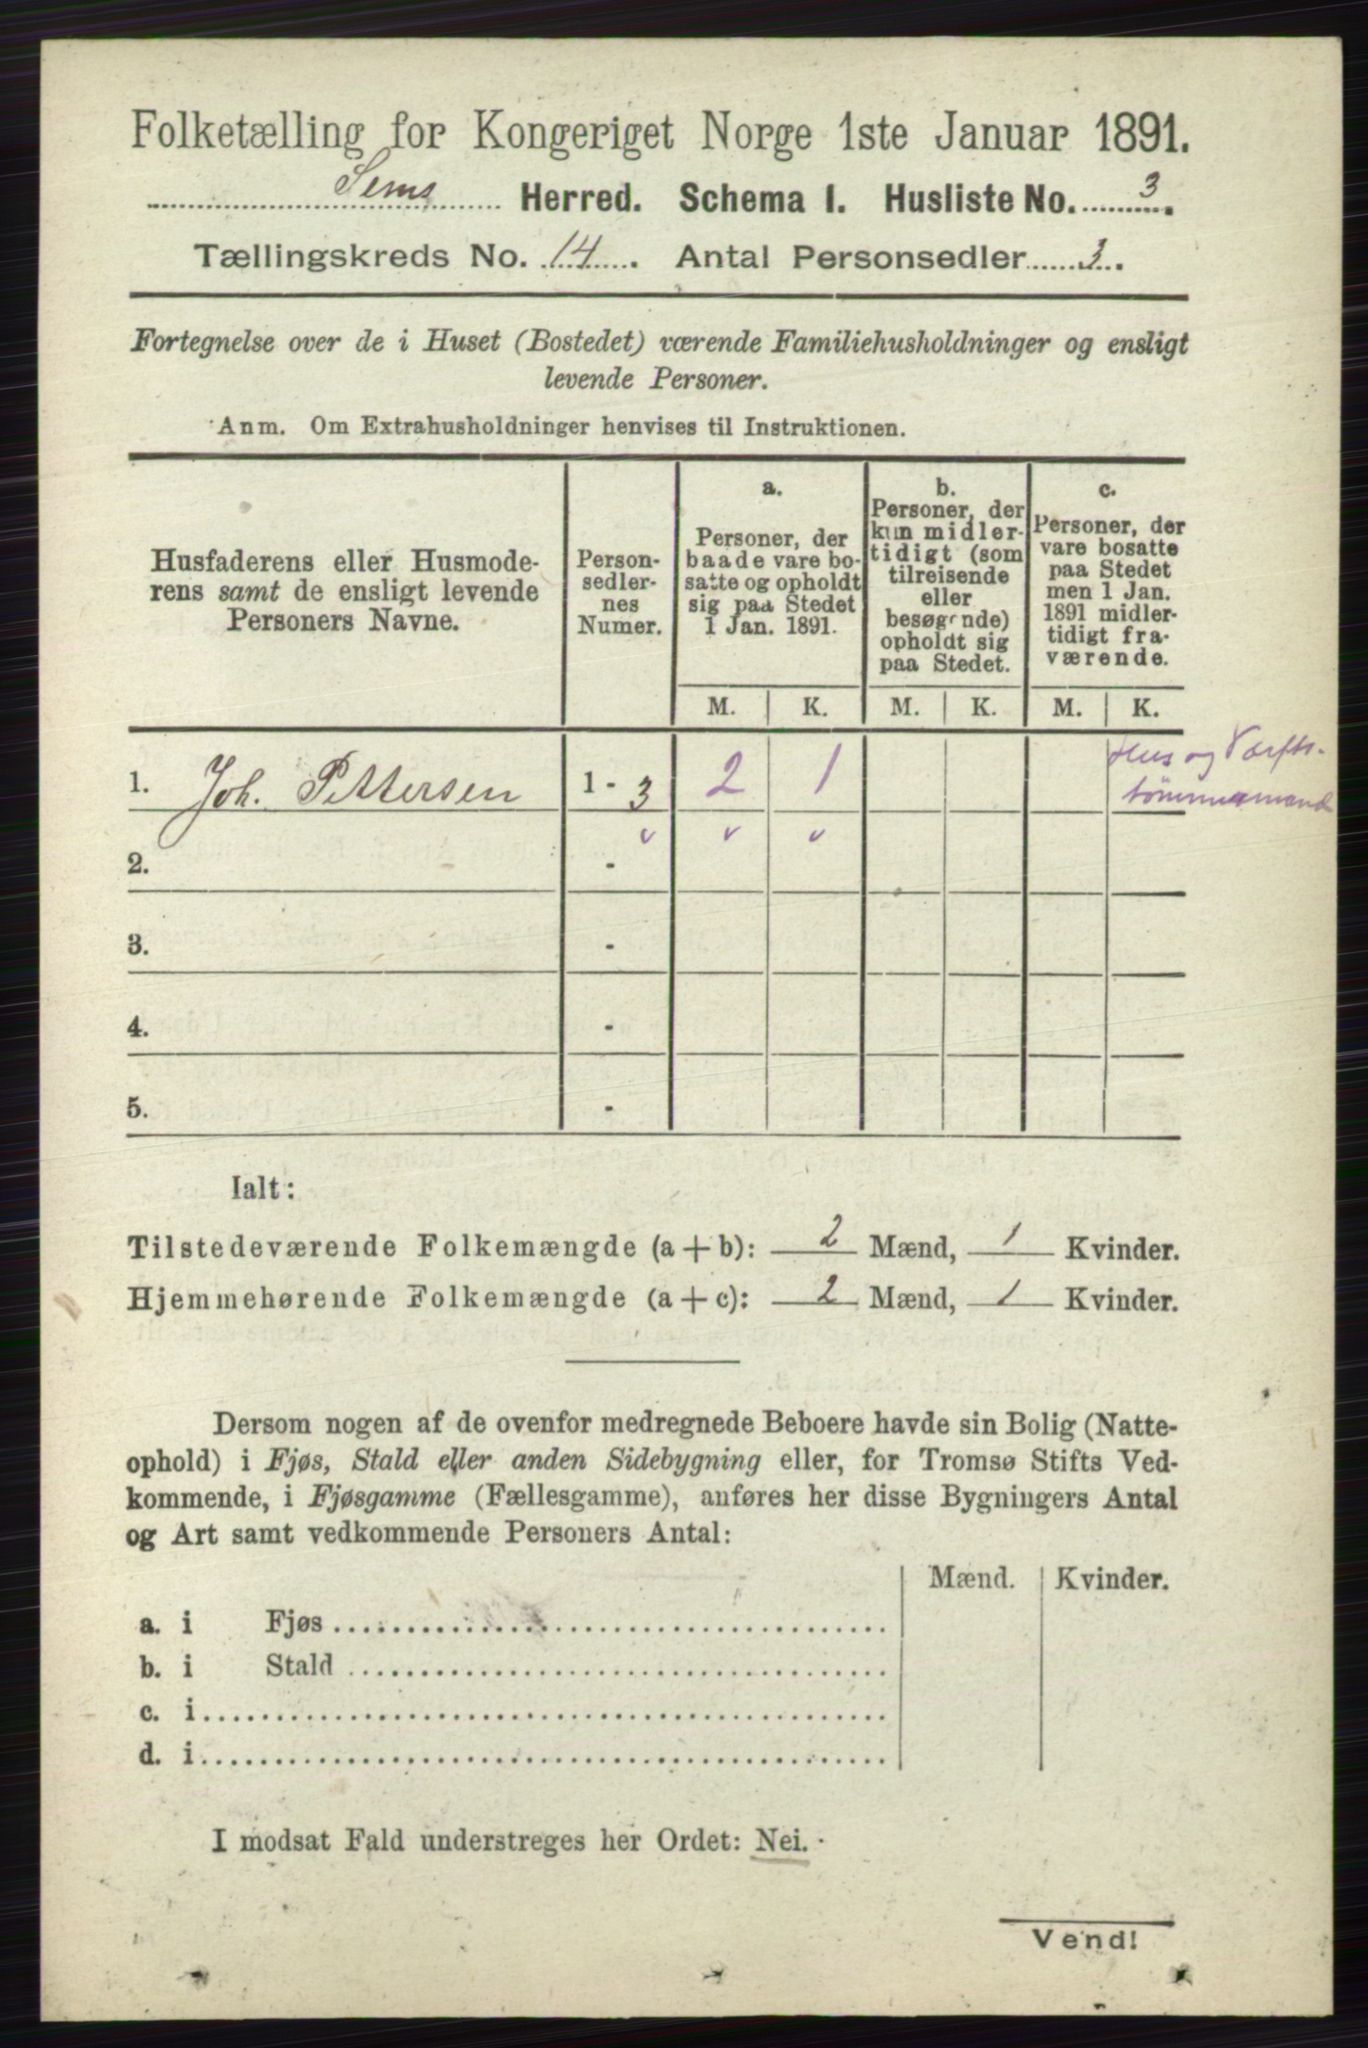 Folketælling for Kongeriget Norge 1ste Januar 1891.
Sems Herred. Schema I. Husliste No. 3.
Tællingskreds No. 14. Antal Personsedler 3.
Fortegnelse over de i Huset (Bostedet) værende Familiehusholdninger og ensligt
levende Personer.
Anm. Om Extrahusholdninger henvises til Instruktionen.
Husfaderens eller Husmode-
rens samt de ensligt levende
Personers Navne.
Person-
sedler-
nes
Numer.
a.
Personer, der
baade vare bo-
satte og opholdt
sig paa Stedet
1 Jan. 1891.
b.
Personer, der
kun midler-
tidigt (som
tilreisende
eller
besøgende)
opholdt sig
paa Stedet.
c.
Personer, der
vare bosatte
paa Stedet
men 1 Jan.
1891 midler-
tidigt fra-
værende.
M. K. M. K. M. K.
1. Joh. Pettersen 1 - 3 2 1
Hus og Værfts-
tømmermand
2. -
3. -
4. -
5. -
Ialt:
Tilstedeværende Folkemængde (a + b): 2 Mænd, 1 Kvinder.
Hjemmehørende Folkemængde (a + c): 2 Mænd, 1 Kvinder.
Dersom nogen af de ovenfor medregnede Beboere havde sin Bolig (Natte-
ophold) i Fjøs, Stald eller anden Sidebygning eller, for Tromsø Stifts Ved-
kommende, i Fjøsgamme (Fællesgamme), anføres her disse Bygningers Antal
og Art samt vedkommende Personers Antal:
Mænd. Kvinder.
a. i Fjøs
b. i Stald
c. i
d. i
I modsat Fald understreges her Ordet: Nei.
Vend!